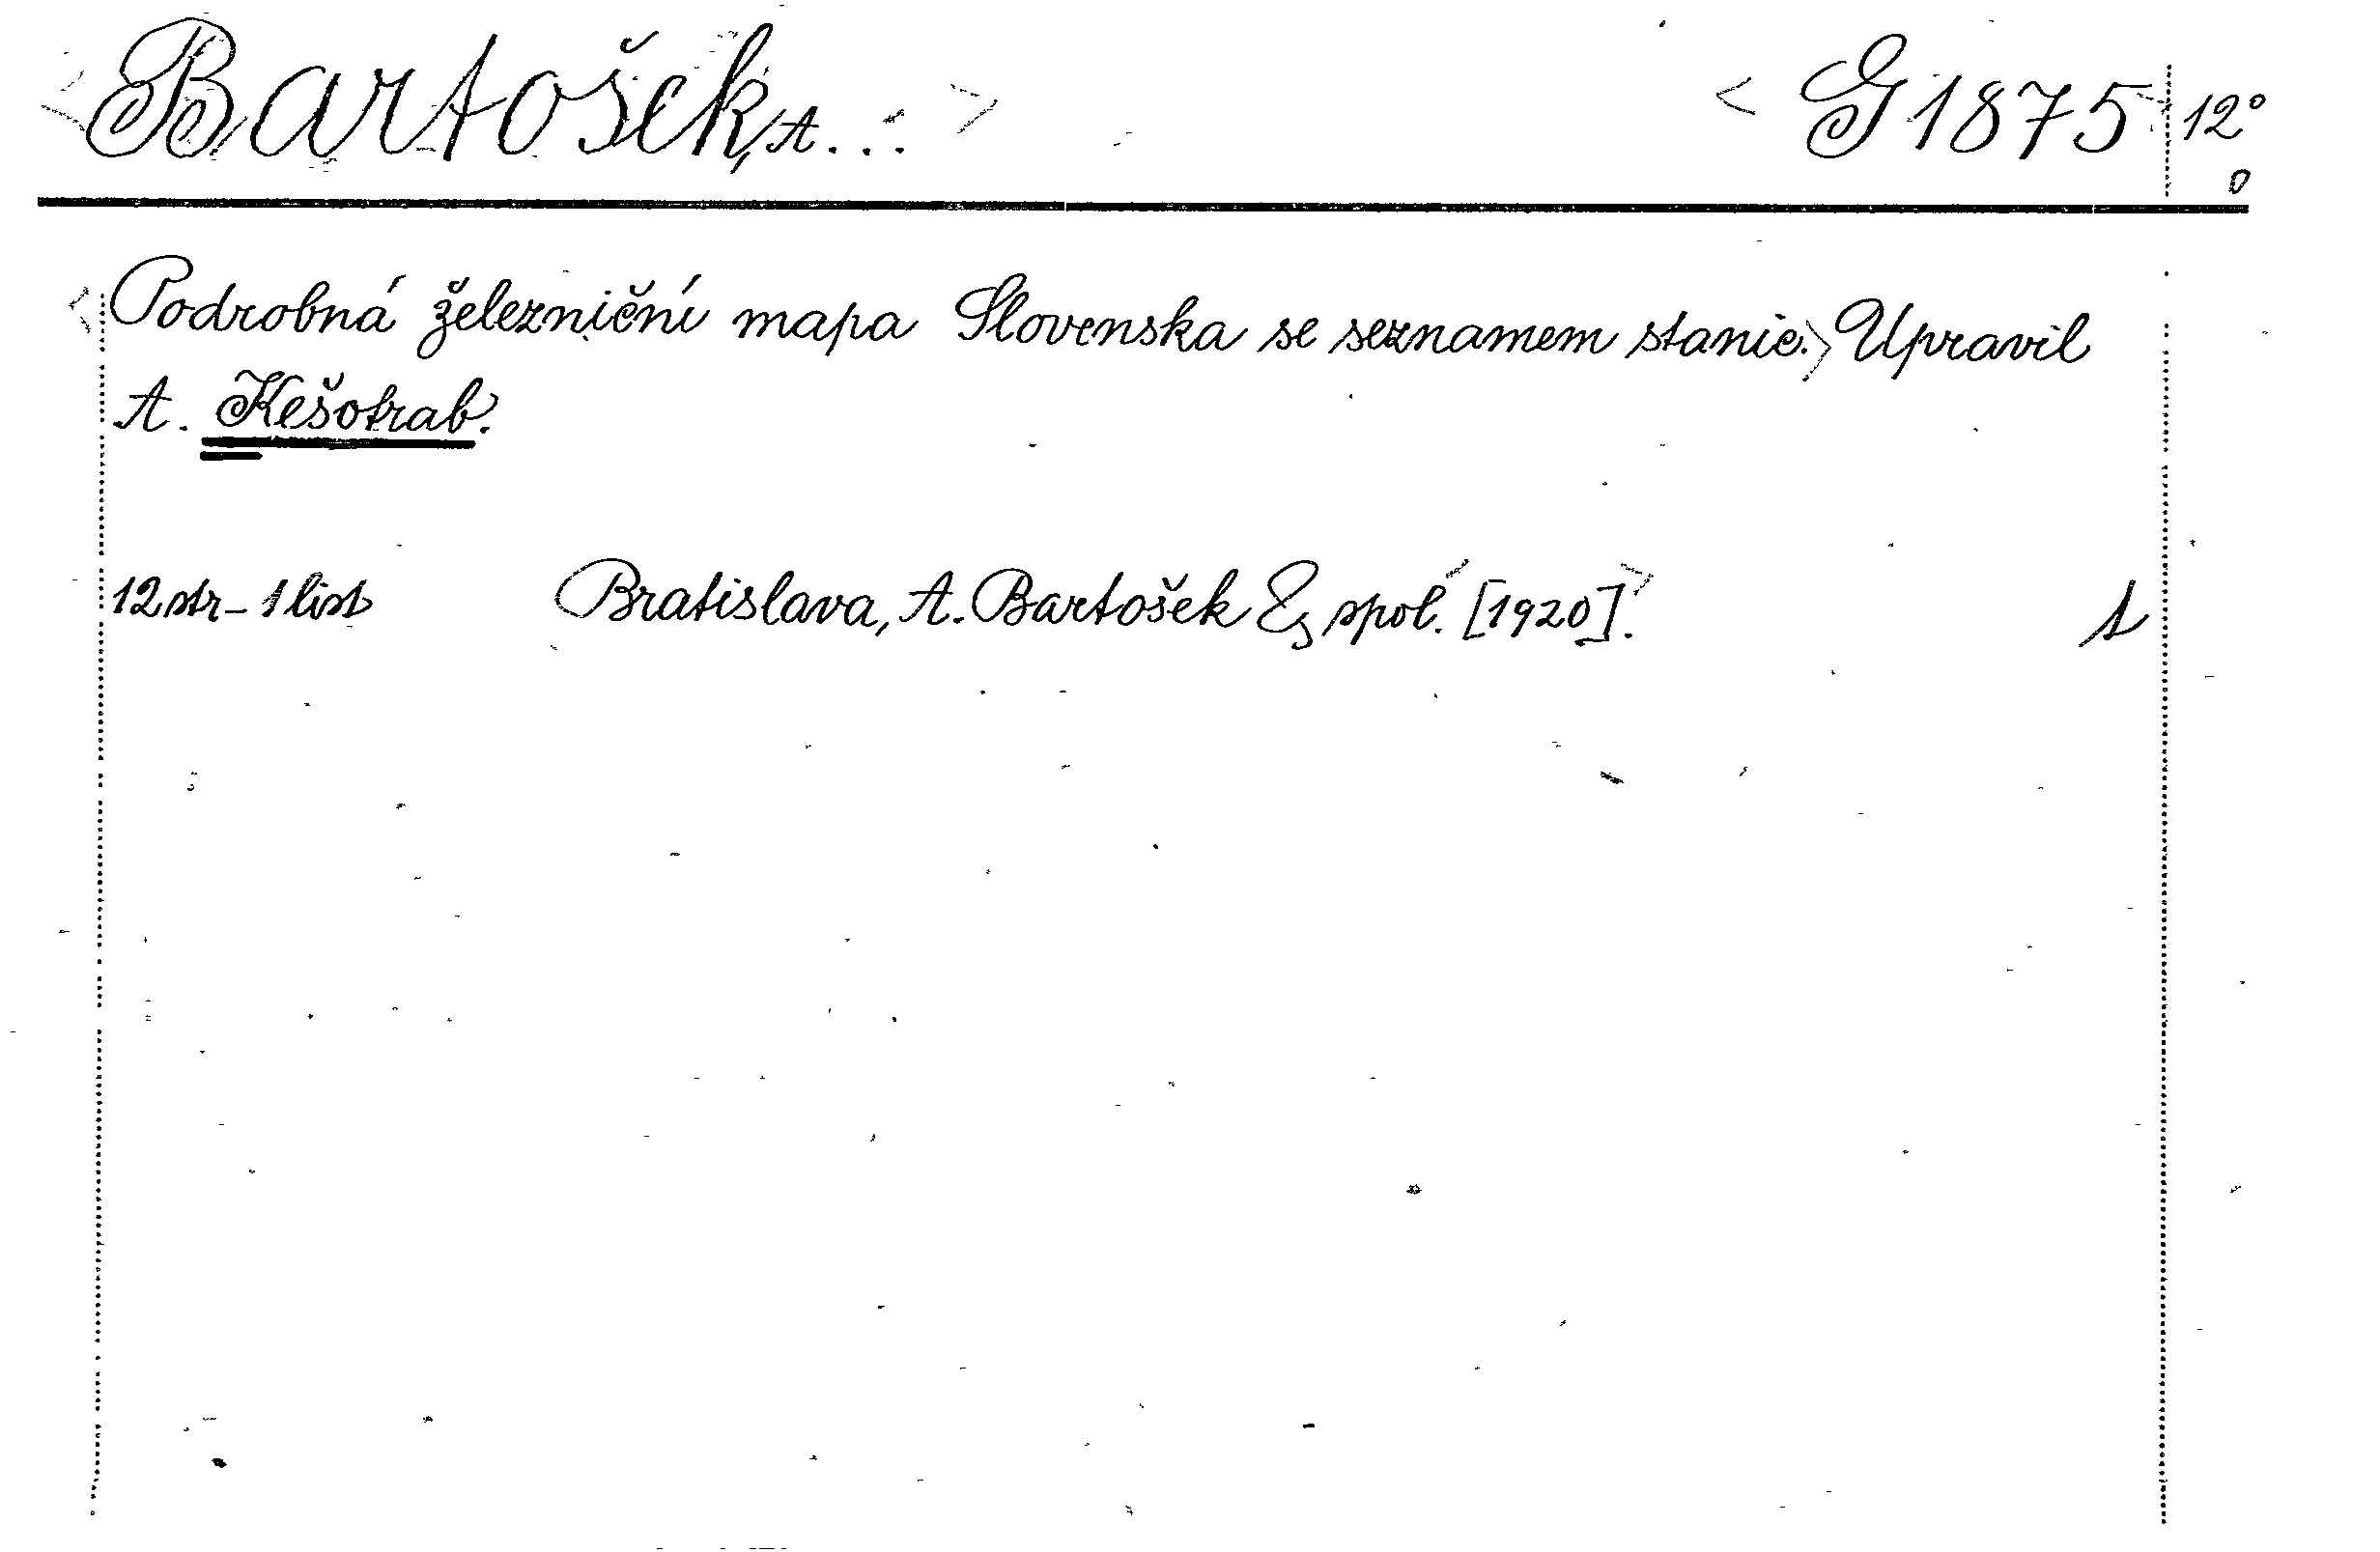 <Bartošek, A...> <G 1875> 12°
0
<Podrobná železniční mapa Slovenska se seznamem stanic.> Upravil
A. Kešotrab.
12 str - 1 list Bratislava, A. Bartošek & spol. [1920]. 1